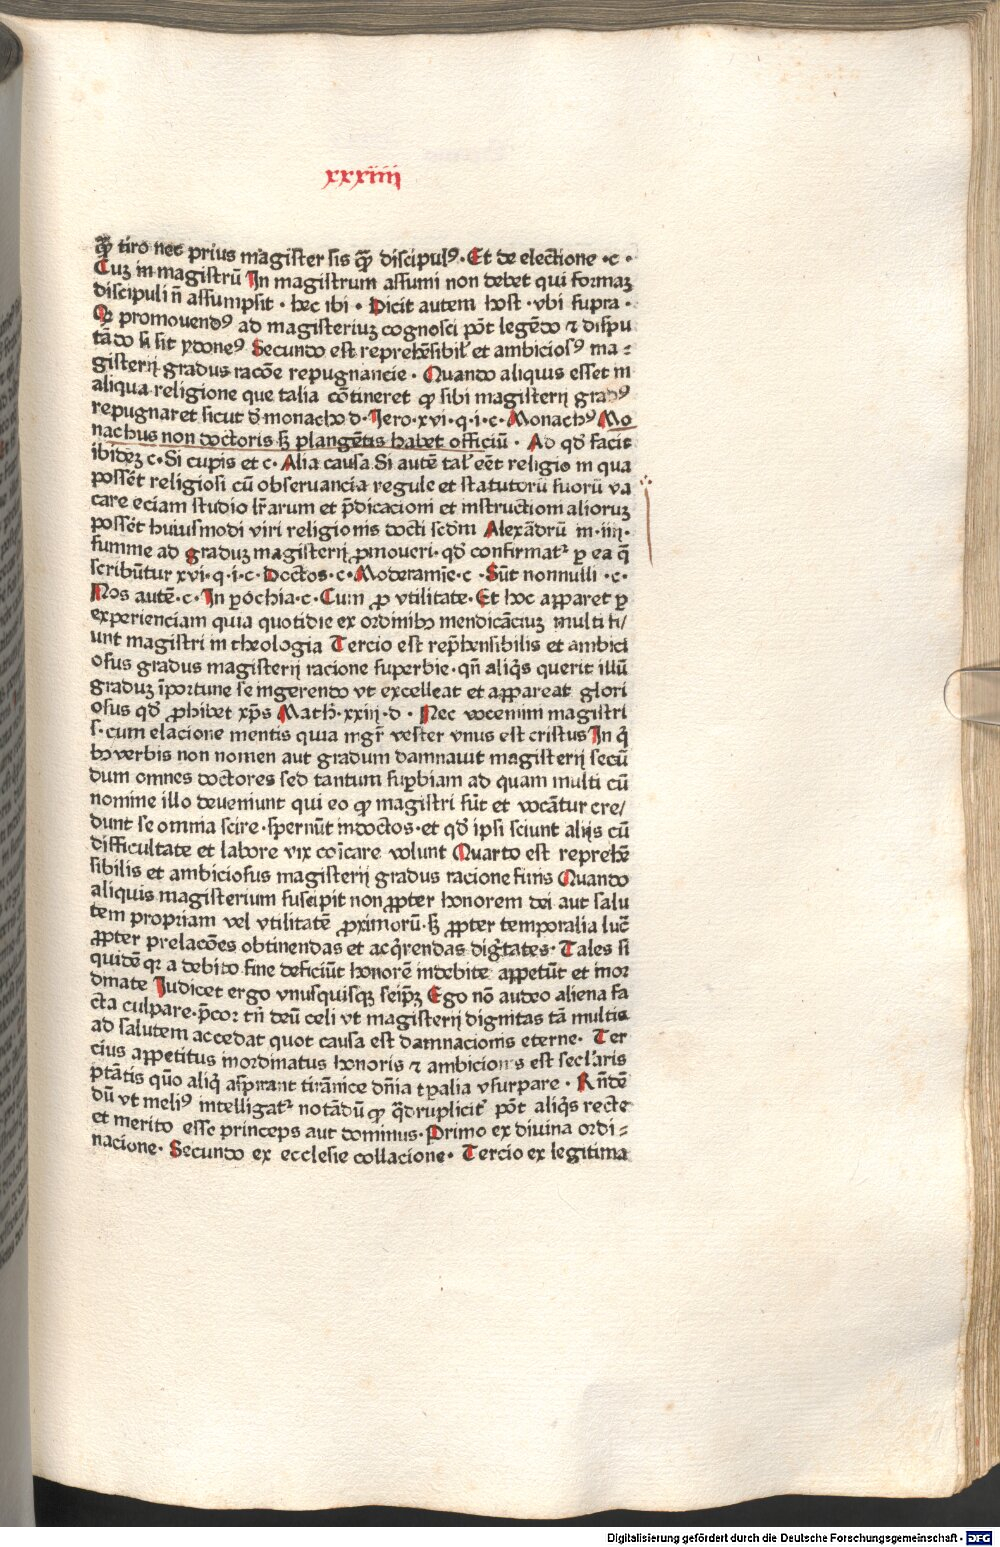 xxxiiii
qꝫ tiro nec prius magister sis qꝫ discipulꝰ · Et de electione · c ·
Cuꝫ in magistrū In magistrum assumi non debet qui formaꝫ
discipuli n̄ assumpsit · hec ibi · Dicit autem host · vbi supra ·
Q promouendꝰ ad magisteriuꝫ cognosci pōt legēdo ⁊ dispu
tādo si sit ydoneꝰ Secundo est reprehēsibil' et ambiciosꝰ ma⸗
gisterij gradus racōe repugnancie · Quando aliquis esset in
aliqua religione que talia cōtineret ꝙ sibi magisterij gradꝰ
repugnaret sicut d' monacho d · Jero · xvi · q · i · c · Monachꝰ Mo
nachus non doctoris sꝫ plangētis habet officiū · Ad qd' facit
ibideꝫ c · Si cupis et c · Alia causa Si autē tal' eēt religio in qua
possēt religiosi cū obseruancia regule et statutorū suorū va
care eciam studio lr̄arum et p̄dicacioni et instructioni alioruꝫ
possēt huiusmodi viri religionis docti scdm Alexādrū in · iiii ·
summe ad graduꝫ magisterij ꝓmoueri · qd' confirmat᷑ ꝑ ea q̄
scribūtur xvi · q · i · c · Doctos · c · Moderamīe · c · Sūt nonnulli · c ·
Nos autē · c · In ꝑochia · c · Cum ꝓ vtilitate · Et hoc apparet ꝑ
experienciam quia quotidie ex ordinibꝫ mendicāciuꝫ multi fi/
unt magistri in theologia Tercio est rep̄hensibilis et ambici
osus gradus magisterij racione superbie · qn̄ aliq̇s querit illū
graduꝫ īportune se ingerendo vt excelleat et appareat glori
osus qd' ꝓhibet xp̄s Math · xxiij · d · Nec vocemini magistri
s · cum elacione mentis quia mgr̄ vester vnus est cristus In q̇
bꝫ verbis non nomen aut gradum damnauit magisterij secū
dum omnes doctores sed tantum suꝑbiam ad quam multi cū
nomine illo deueniunt qui eo ꝙ magistri sūt et vocātur cre/
dunt se omnia scire · spernūt indoctos · et qd' ipsi sciunt alijs cū
difficultate et labore vix coīcare volunt Quarto est reprehē
sibilis et ambiciosus magisterij gradus racione finis Quando
aliquis magisterium suscipit non ꝓpter honorem dei aut salu
tem propriam vel vtilitatē ꝓximorū · sꝫ ꝓpter temporalia luc̄
ꝓpter prelacōes obtinendas et acq̇rendas dig̅tates · Tales si
quidē qꝛ a debito fine deficiūt honorē indebite appetūt et inor
dinate Iudicet ergo vnusquisqꝫ seipꝫ Ego nō audeo aliena fa
cta culpare · p̄coꝛ tn̄ deū celi vt magisterij dignitas tā multis
ad salutem accedat quot causa est damnacionis eterne · Ter
cius appetitus inordinatus honoris ⁊ ambicionis est secl'aris
ptātis quō aliq̇ aspirant tirānice dn̄ia tꝑalia vsurpare · Rn̄dē
dū vt meliꝰ intelligat᷑ notādū ꝙ q̄druplicit᷑ pōt aliq̇s recte
et merito esse princeps aut dominus · Primo ex diuina ordi⸗
nacione · Secundo ex ecclesie collacione · Tercio ex legitima
Digitalisierung gefördert durch die Deutsche Forschungsgemeinschaft - DFG